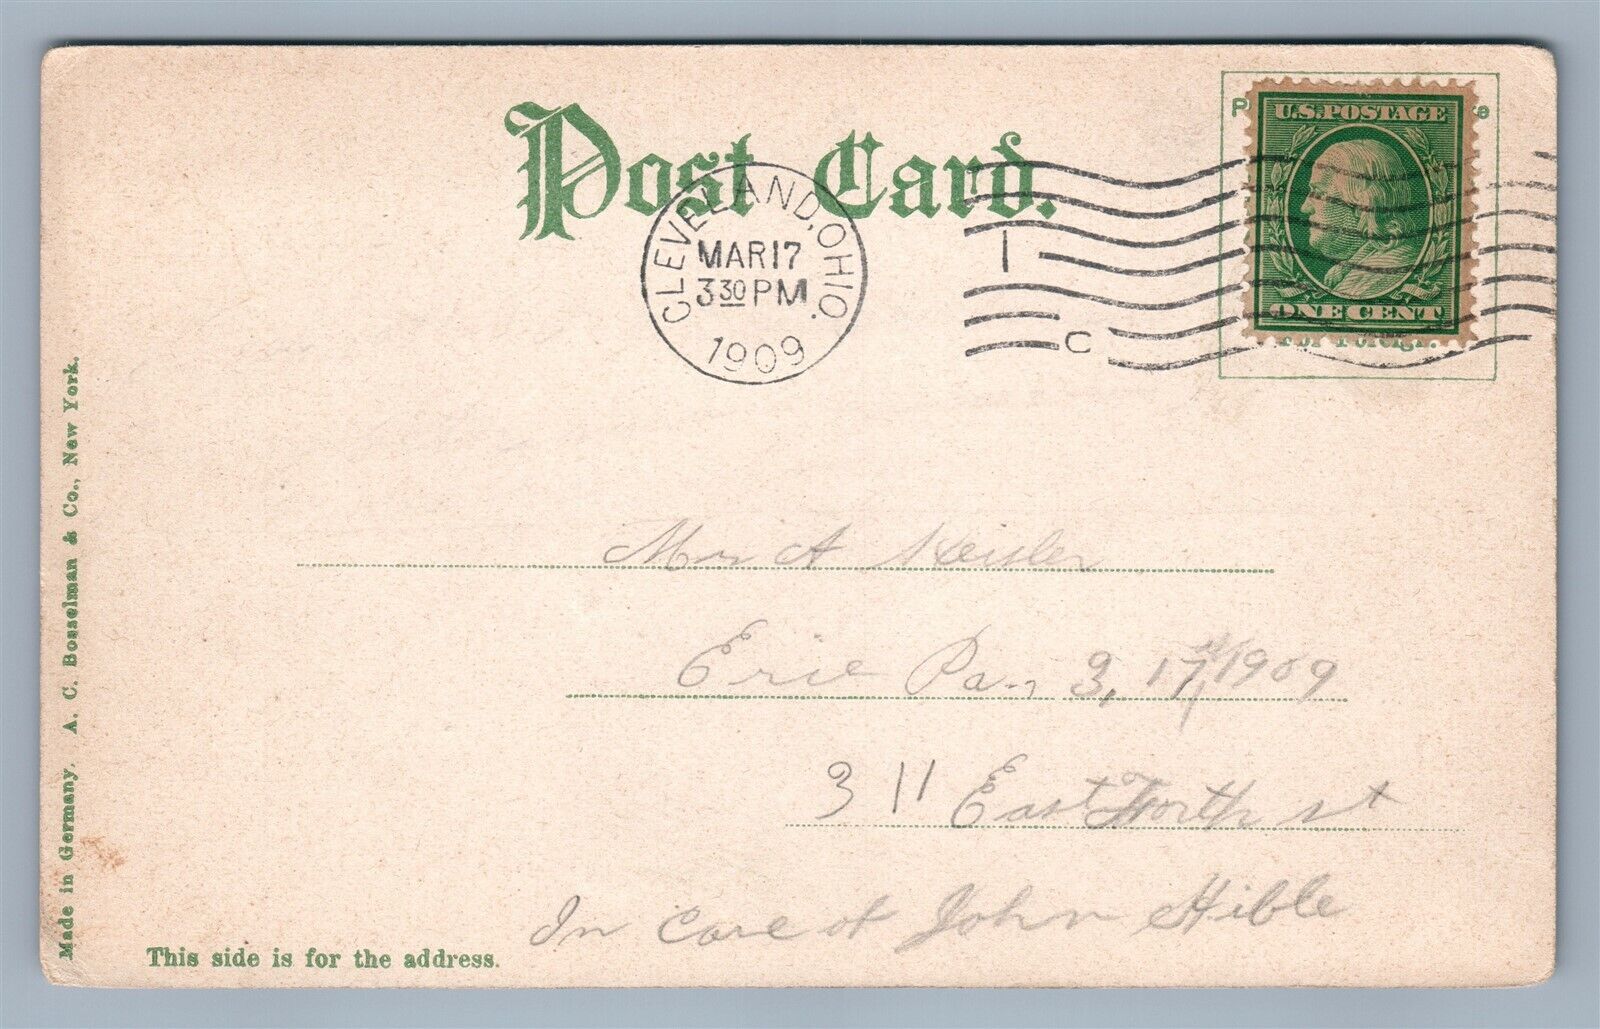 Post Card.
U.S. POSTAGE
ONE CENT
CLEVELAND, OHIO.
MAR 17
3 30 PM
1909
1
C
A
Erie Pa. 3, 17, 1909
311 East North st
In care of John Hible
This side is for the address.
Made in Germany. A. C. Bosselman & Co., New York.